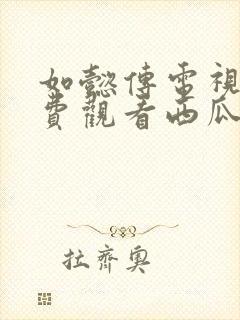 如懿傳電視
費觀看西瓜
拉齊奧